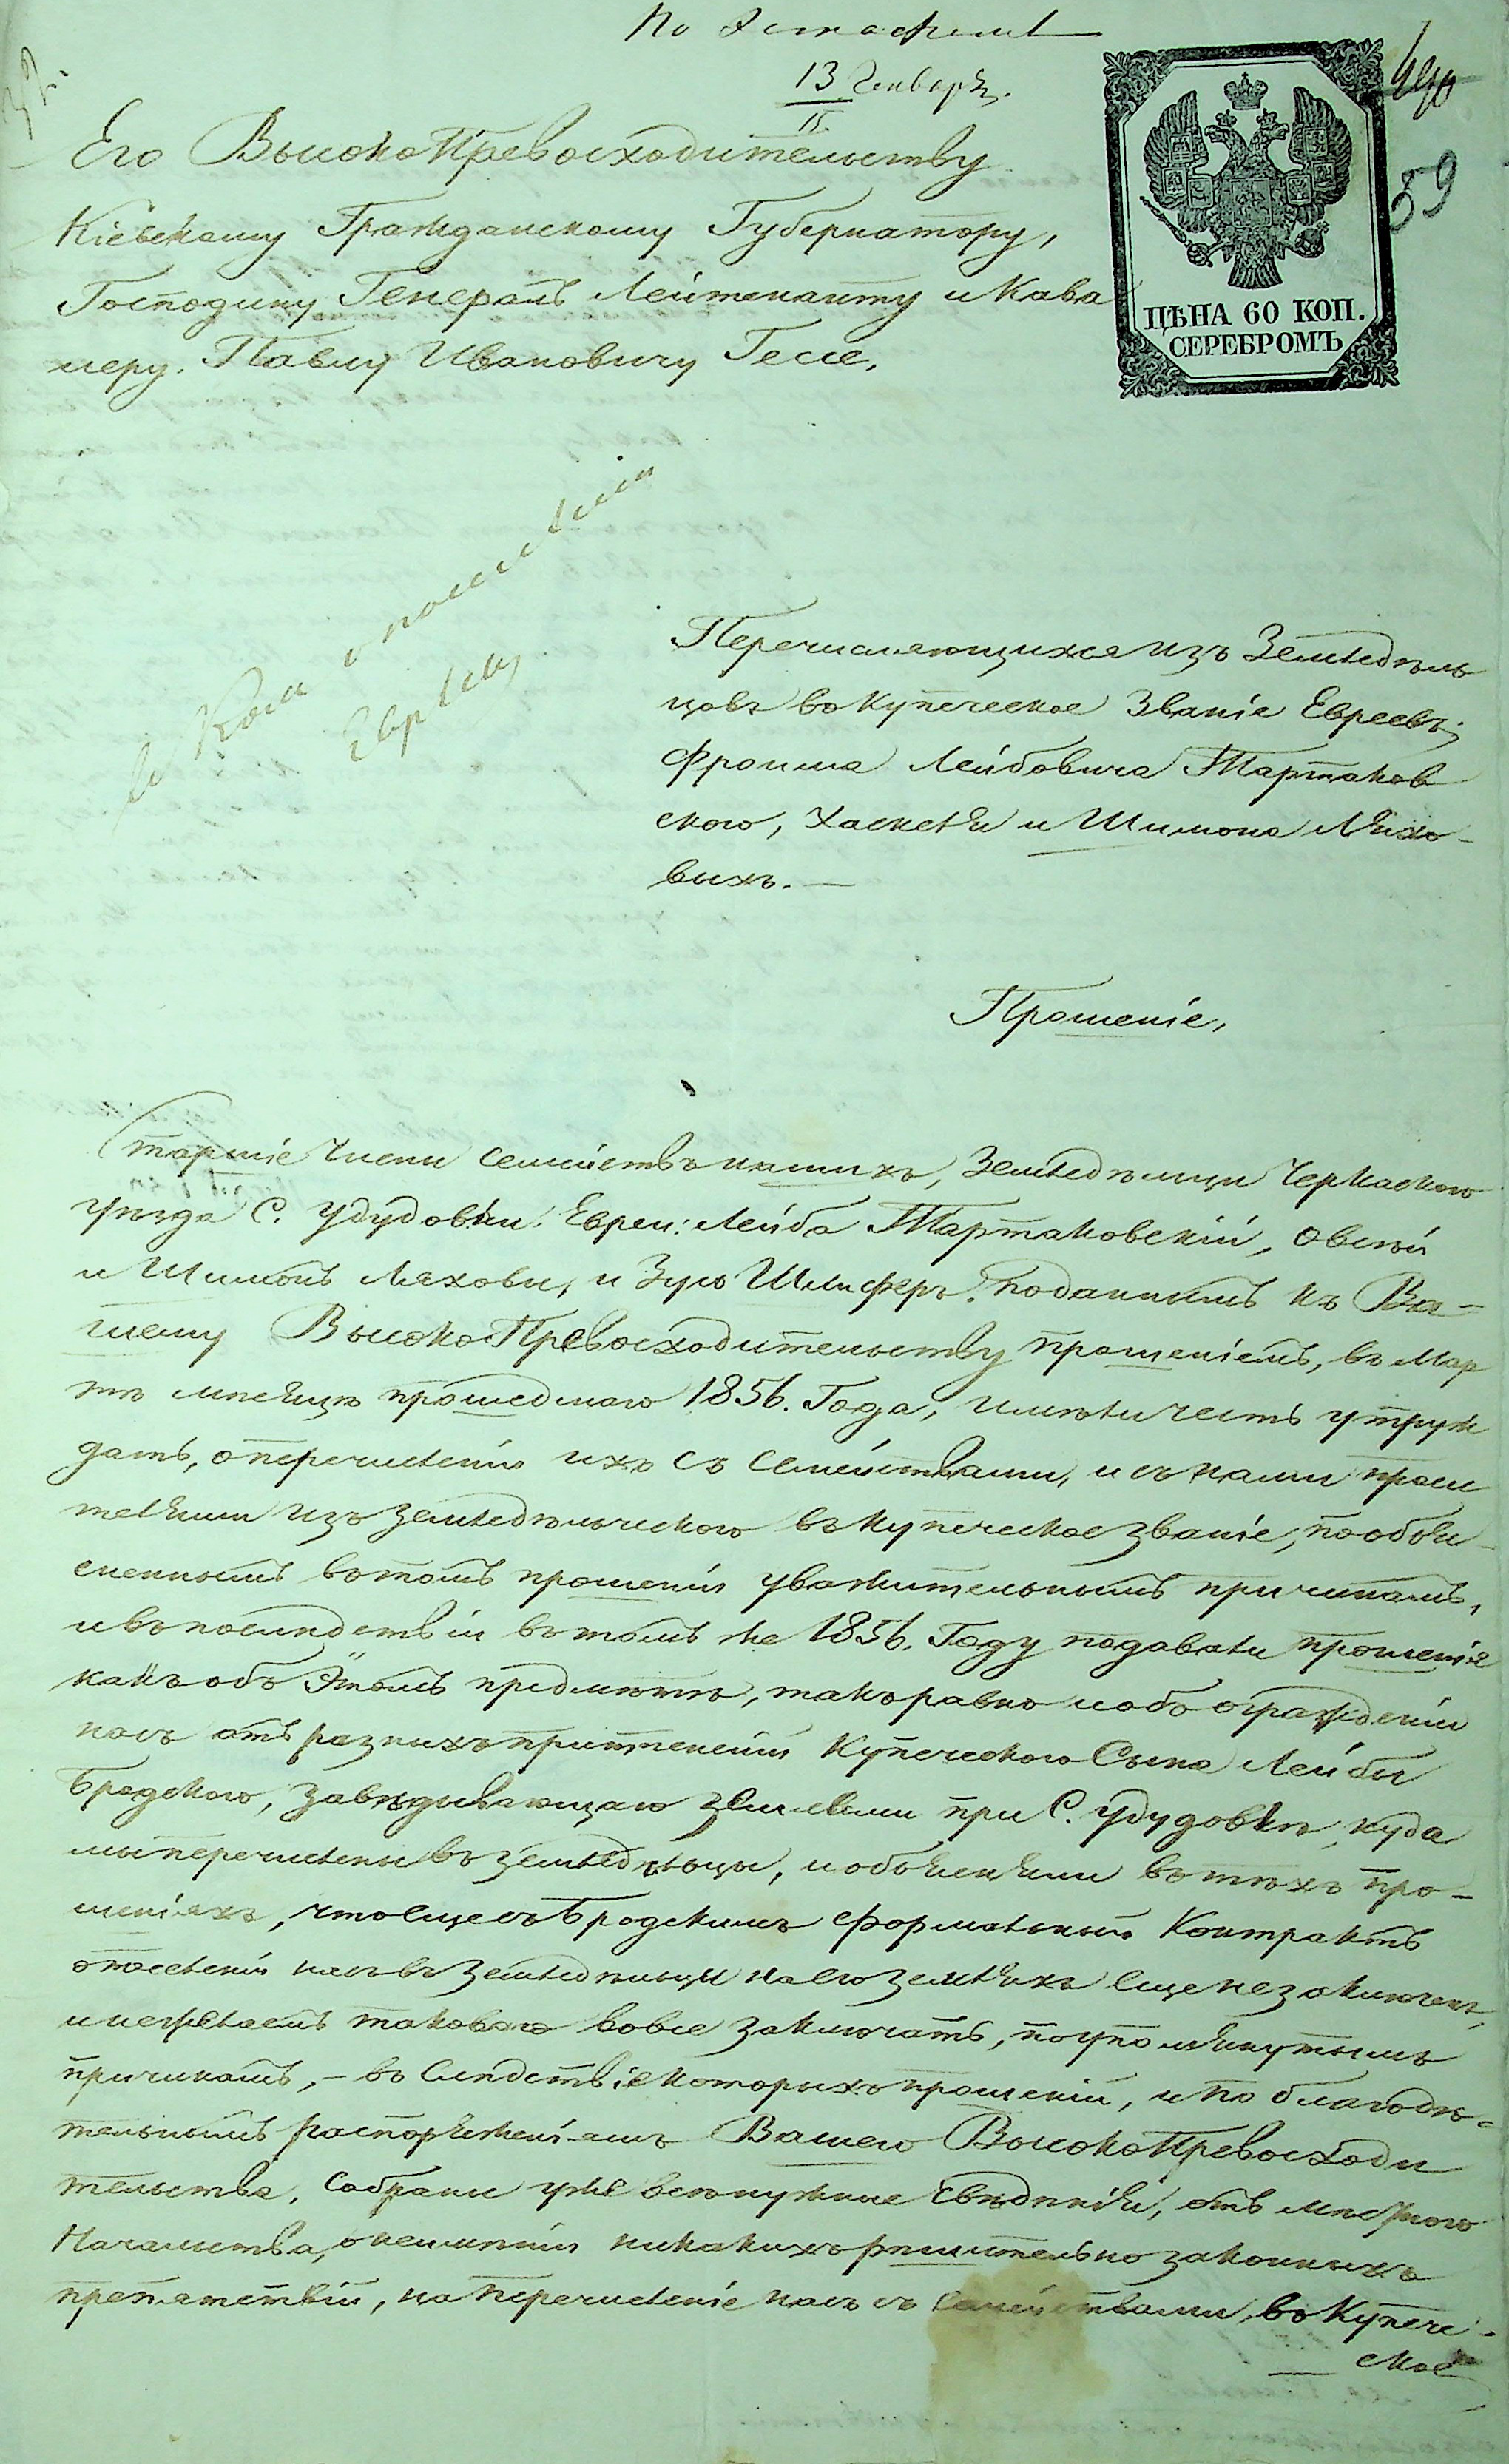 По Эстафете
13 Генваря.
59
Его ВысокоПревосходительству
Кіевскому Гражданскому Губернатору,
Господину Генералъ Лейтенанту и Кава
леру. Павлу Ивановичу Гессе,
ЦѢНА 60 КОП.
СЕРЕБРОМЪ
о поселеніи
Евреевъ
Перечисляющихся изъ Земледѣль
цовъ во Купеческое Званіе Евреевъ;
Фроима Лейбовича Тартаков
ского, Хаскеля и Шимона Ляхо-
выхъ.—
Прошеніе,
Старшіе Члены семействъ нашихъ, Земледѣльцы Черкаского
уѣзда С. Удудовки: Евреи: Лейба Тартаковскій, Овсѣй
и Шимонъ Ляховы, и Зусь Шлиферъ. поданнымъ къ Ва-
шему ВысокоПревосходительству прошеніемъ, въ Мар
тѣ мѣсяцѣ прошедшаго 1856. Года, имѣли честь утруж
дать, о перечисленіи ихъ съ семействами, и съ нами проси
телями изъ земледѣльческого въ купеческое званіе, по объя-
сненнымъ въ томъ прошеніи уважительнымъ причинамъ,
и въ послѣдствіи въ томъ же 1856. Году подавали прошенія
какъ объ Этомъ предметѣ, такъ равно и объ огражденіи
насъ отъ разныхъ притѣсненій Купеческого Сына Лейбы
Бродского, завѣдывающаго землями при С. Удудовкѣ, куда
мы перечислены въ земледѣльцы, и объясняли въ тѣхъ про-
шеніяхъ, что еще съ Бродскимъ формальный Контрактъ
о поселеніи насъ въ Земледѣльцы на его земляхъ еще не заключенъ,
и не желаемъ таковаго вовсе заключать, по упомянутымъ
причинамъ,- во слѣдствіе которыхъ прошеній, и по благодѣ-
тельнымъ распоряженіямъ Вашего ВысокоПревосходи
тельства, собраны уже всѣ нужные свѣдѣнія, отъ мѣстного
Начальства, о неимѣніи никакихъ рѣшительно законныхъ
препятствій, на перечисленіе насъ съ семействами, во Купече-
ское